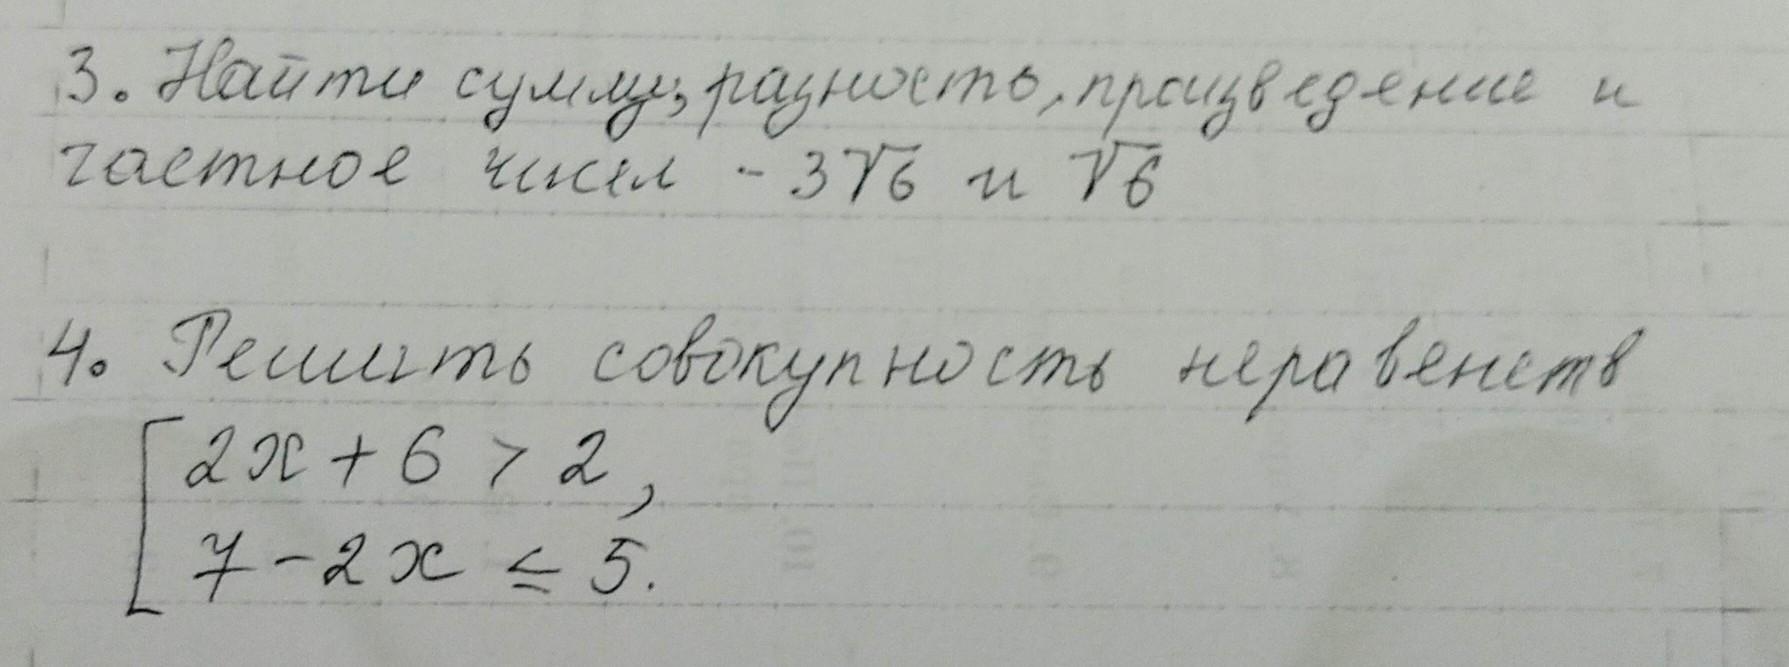 3. Найти сумму, разность, произведение и
частное чисел -3√6 и √6
4. Решить совокупность неравенств
[2x + 6 > 2,
7 - 2x ≤ 5.